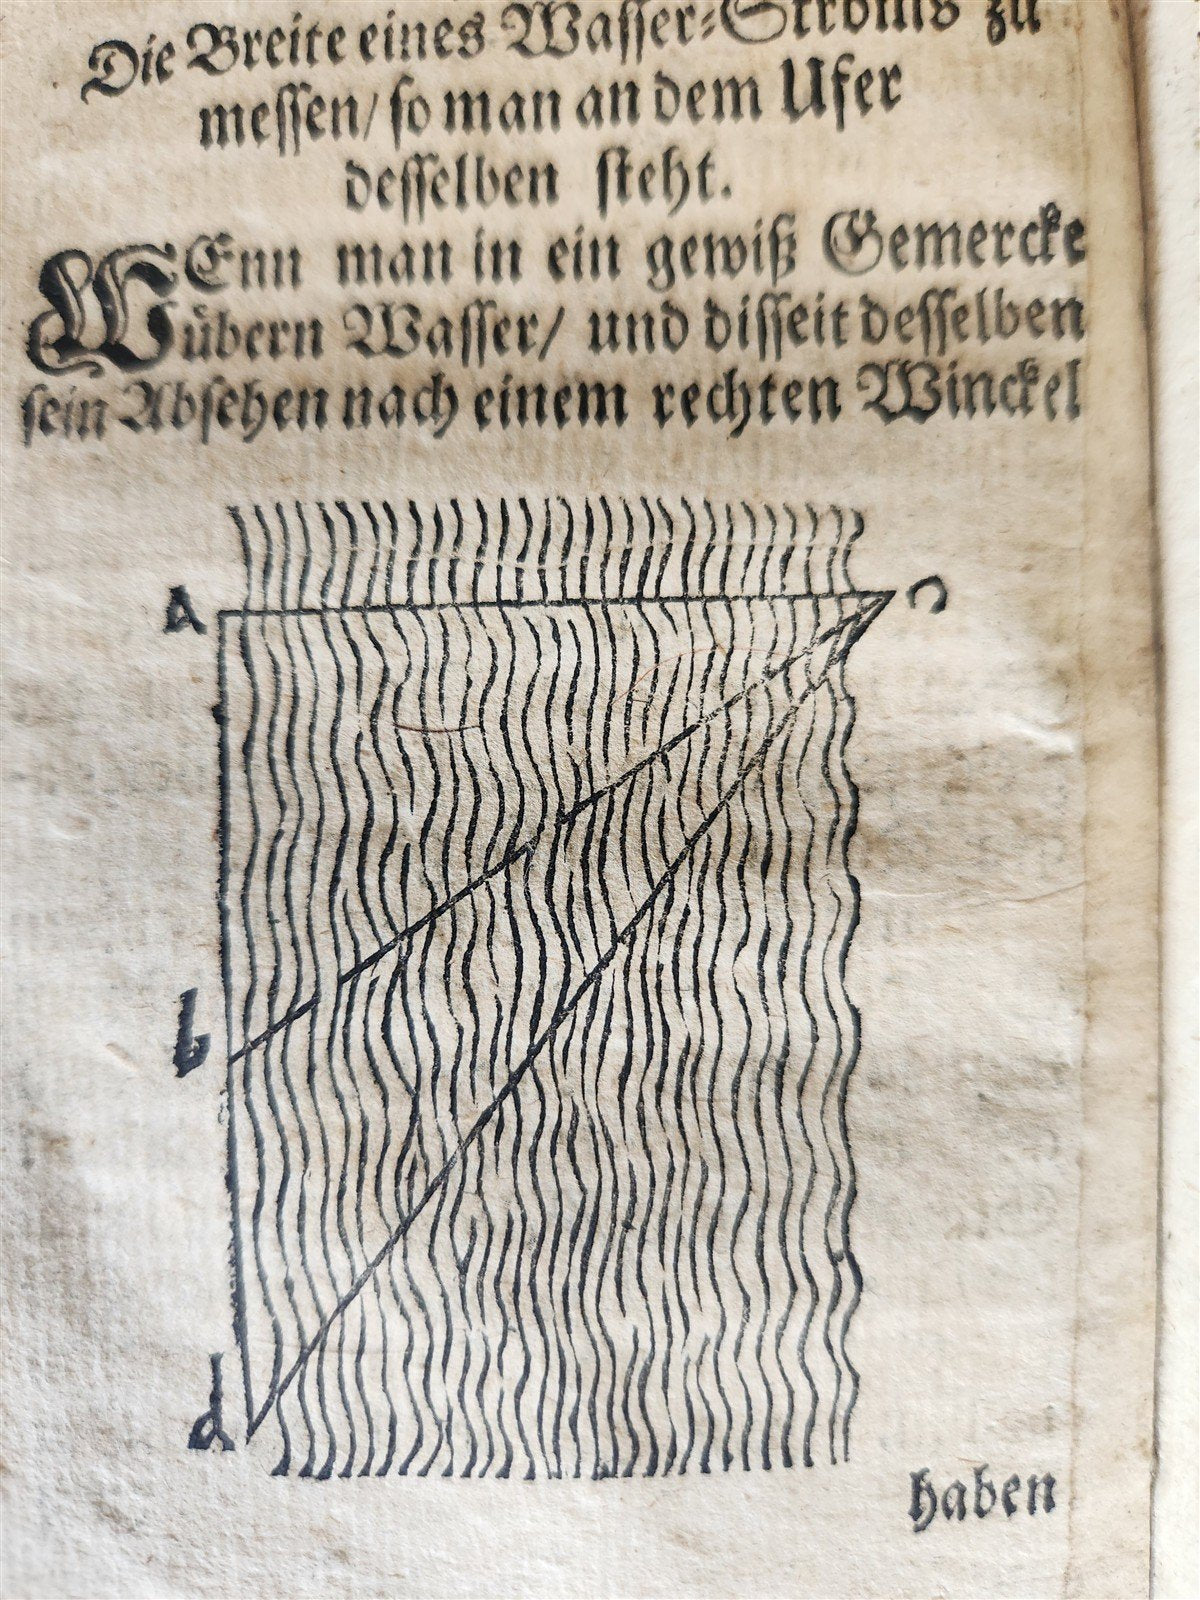 Die Breite eines Wasser-Stroms zu
messen/ so man an dem Ufer
desselben steht.
WEnn man in ein gewiß Gemercke
übern Wasser/ und disseit desselben
sein Absehen nach einem rechten Winckel
A
C
b
d
haben